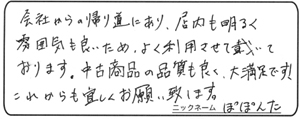 会社からの帰り道にあり、店内も明るく
雰囲気も良いため、よく利用させて戴いて
おります。中古商品の品質も良く、大満足です!
これからも宜しくお願い致します。
ニックネーム ぽぽんた